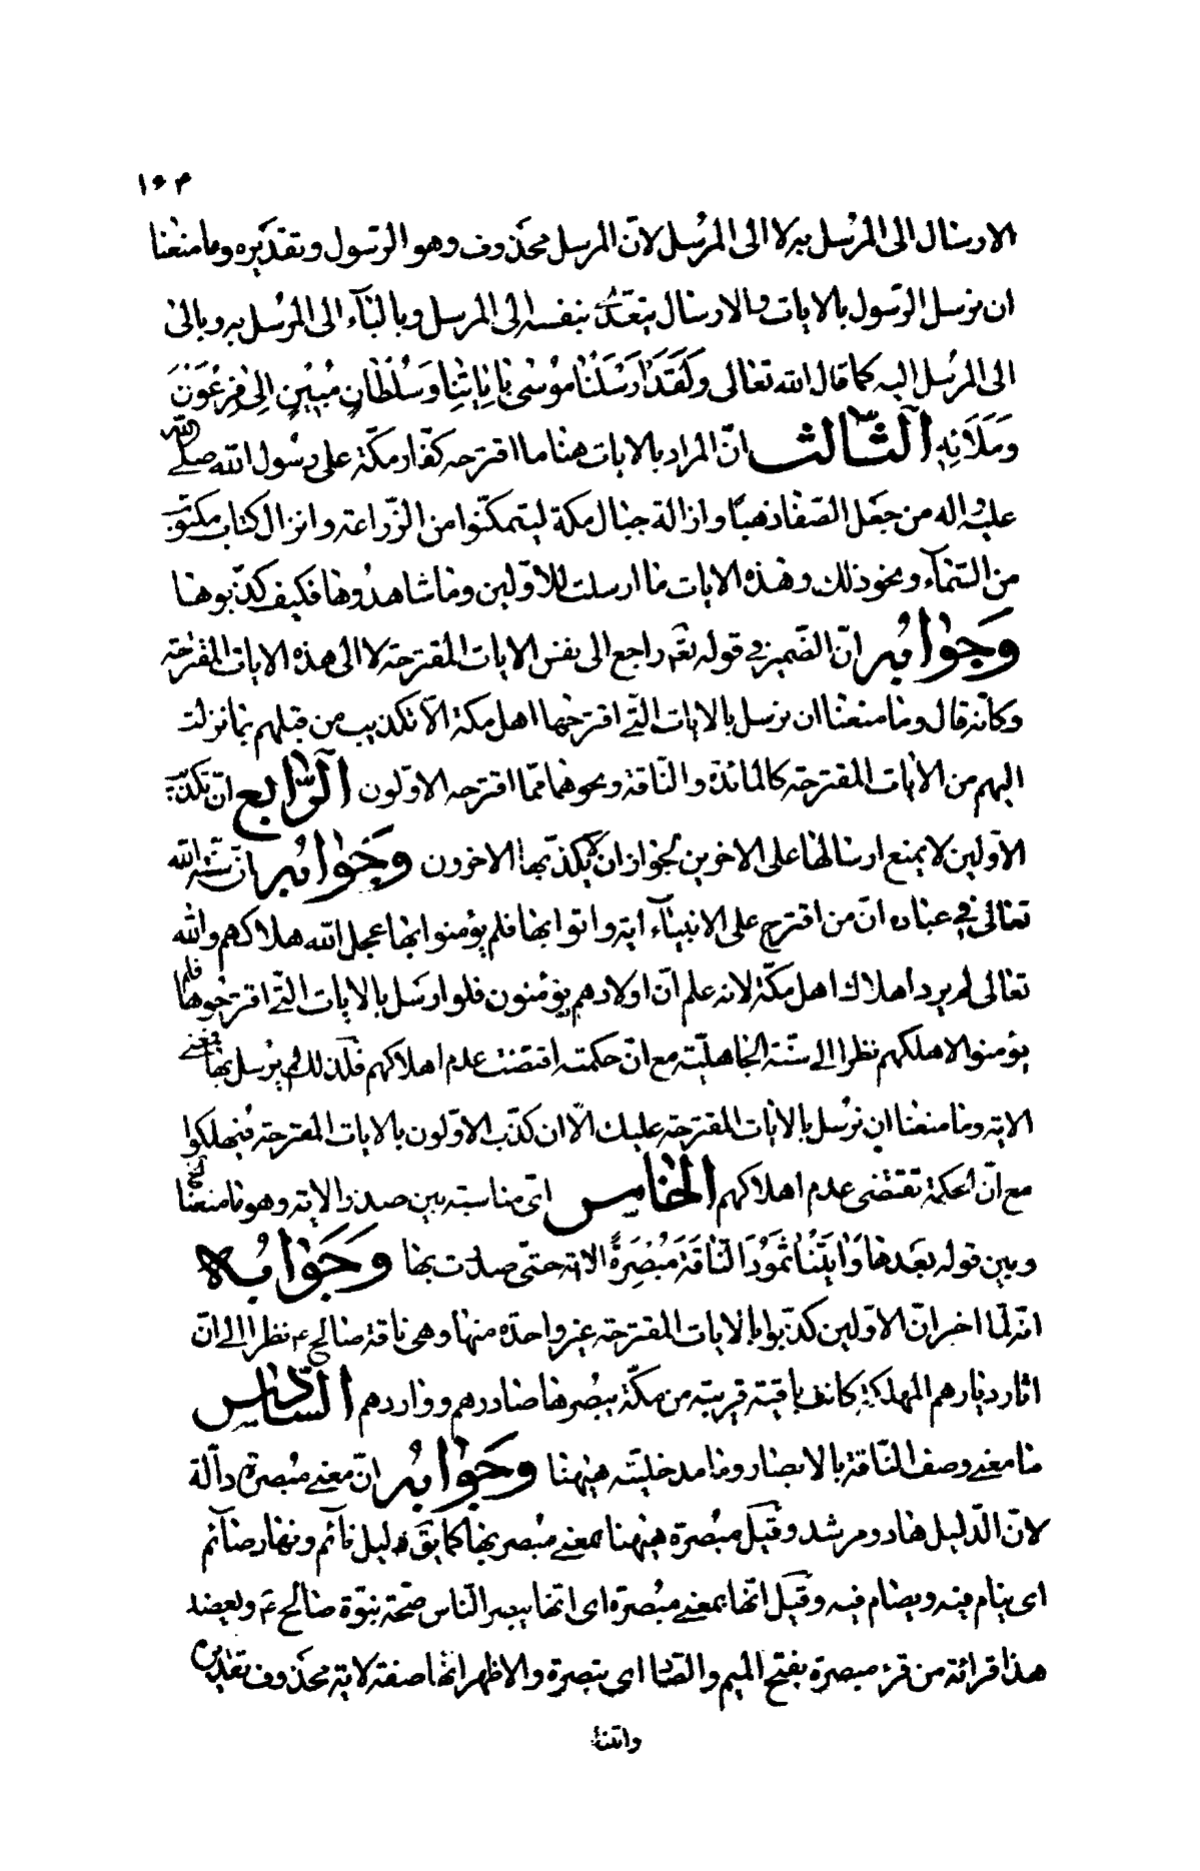 ١٠٣
الارسال الى المرسل به لا الى المرسل لانّ المرسل محذوف وهو الرّسول وتقديره وما منعنا
ان نرسل الرّسول بالايات والارسال يتعدّى بنفسه الى المرسل وبالباء الى المرسل به وبالى
الى المرسل اليه كما قال الله تعالى وَلَقَدْ اَرْسَلْنٰا مُوسٰى بِاٰيٰاتِنٰا وَسُلْطٰانٍ مُبينٍ اِلىٰ فِرْعَوْنَ
وَمَلَائِهِ الثّالث انّ المراد بالايات هنا ما اقترحه كفّار مكّة على رسول الله صلّى الله
عليه واله من جعل الصّفا ذهبًا وازالة جبال مكة ليتمكّنوا من الزّراعة وانزال كتاب مكتوب
من السّماء ونحو ذلك وهذه الايات ما ارسلت للاوّلين وما شاهدوها فكيف كذّبوها
وَجَوابُه انّ الضّمير في قوله بها راجع الى نفس الايات المقترحة لا الى هذه الايات المقترحة
وكانّه قال وما منعنا ان نرسل بالايات الّتي اقترحها اهل مكة الّا تكذيب من قبلهم بما نزلت
اليهم من الايات المقترحة كالمائدة والنّاقة ونحوهما ممّا اقترحه الاوّلون الرّابع انّ تكذيب
الاوّلين لا يمنع ارسالها على الاخرين لجواز ان لا يكذّب بها الاخرون وَجَوابُه انّ سنّة الله
تعالى في عباده انّ من اقترح على الانبياء اية واتوا بها فلم يؤمنوا بها عجل الله هلاكهم والله
تعالى لم يرد اهلاك اهل مكّة لانه علم انّ اولادهم يؤمنون فلو ارسل بالايات الّتي اقترحوها فلم
يؤمنوا لاهلكهم نظرا الى سنّته الجاهليّة مع انّ حكمته اقتضت عدم اهلاكهم فلذلك لم يرسل بها فمعنى
الاية وما منعنا ان نرسل بالايات المقترحة عليك الّا ان كذّب الاوّلون بالايات المقترحة فيهلكوا
مع انّ الحكمة تقتضى عدم اهلاكهم الخامس اىّ مناسبة بين صدر الاية وهو ما منعنا الخ
وبين قوله بعدها وَاٰتَيْنٰا ثَمُودَ النّاقَةَ مُبْصِرَةً الاية حتّى صارت بها وَجَوابُه
انّه لمّا اخبر انّ الاوّلين كذّبوا بالايات المقترحة عيّن واحدة منها وهى ناقة صالح ع نظرا الى انّ
اثار ديارهم المهلكة كانت باقية قريبة من مكّة يبصرها صادرهم وواردهم السّادس
ما معنى وصف النّاقة بالابصار وما مدخليّته هيهنا وَجَوابُه انّ معنى مبصرة دالّة
لانّ الدّليل هاد ومرشد وقيل مبصرة هيهنا بمعنى مبصر بها كما يق ليل نائم ونهار صائم
اى ينام فيه ويصام فيه وقيل انّها بمعنى مبصرة اى انّها يبصر النّاس صحّة نبوّة صالح ع ويعضد
هذا قرائة من قرء مبصرة بفتح الميم والصّاد اى تبصرة والاظهر انّها صفة لاية محذوف تقديره
واتينا